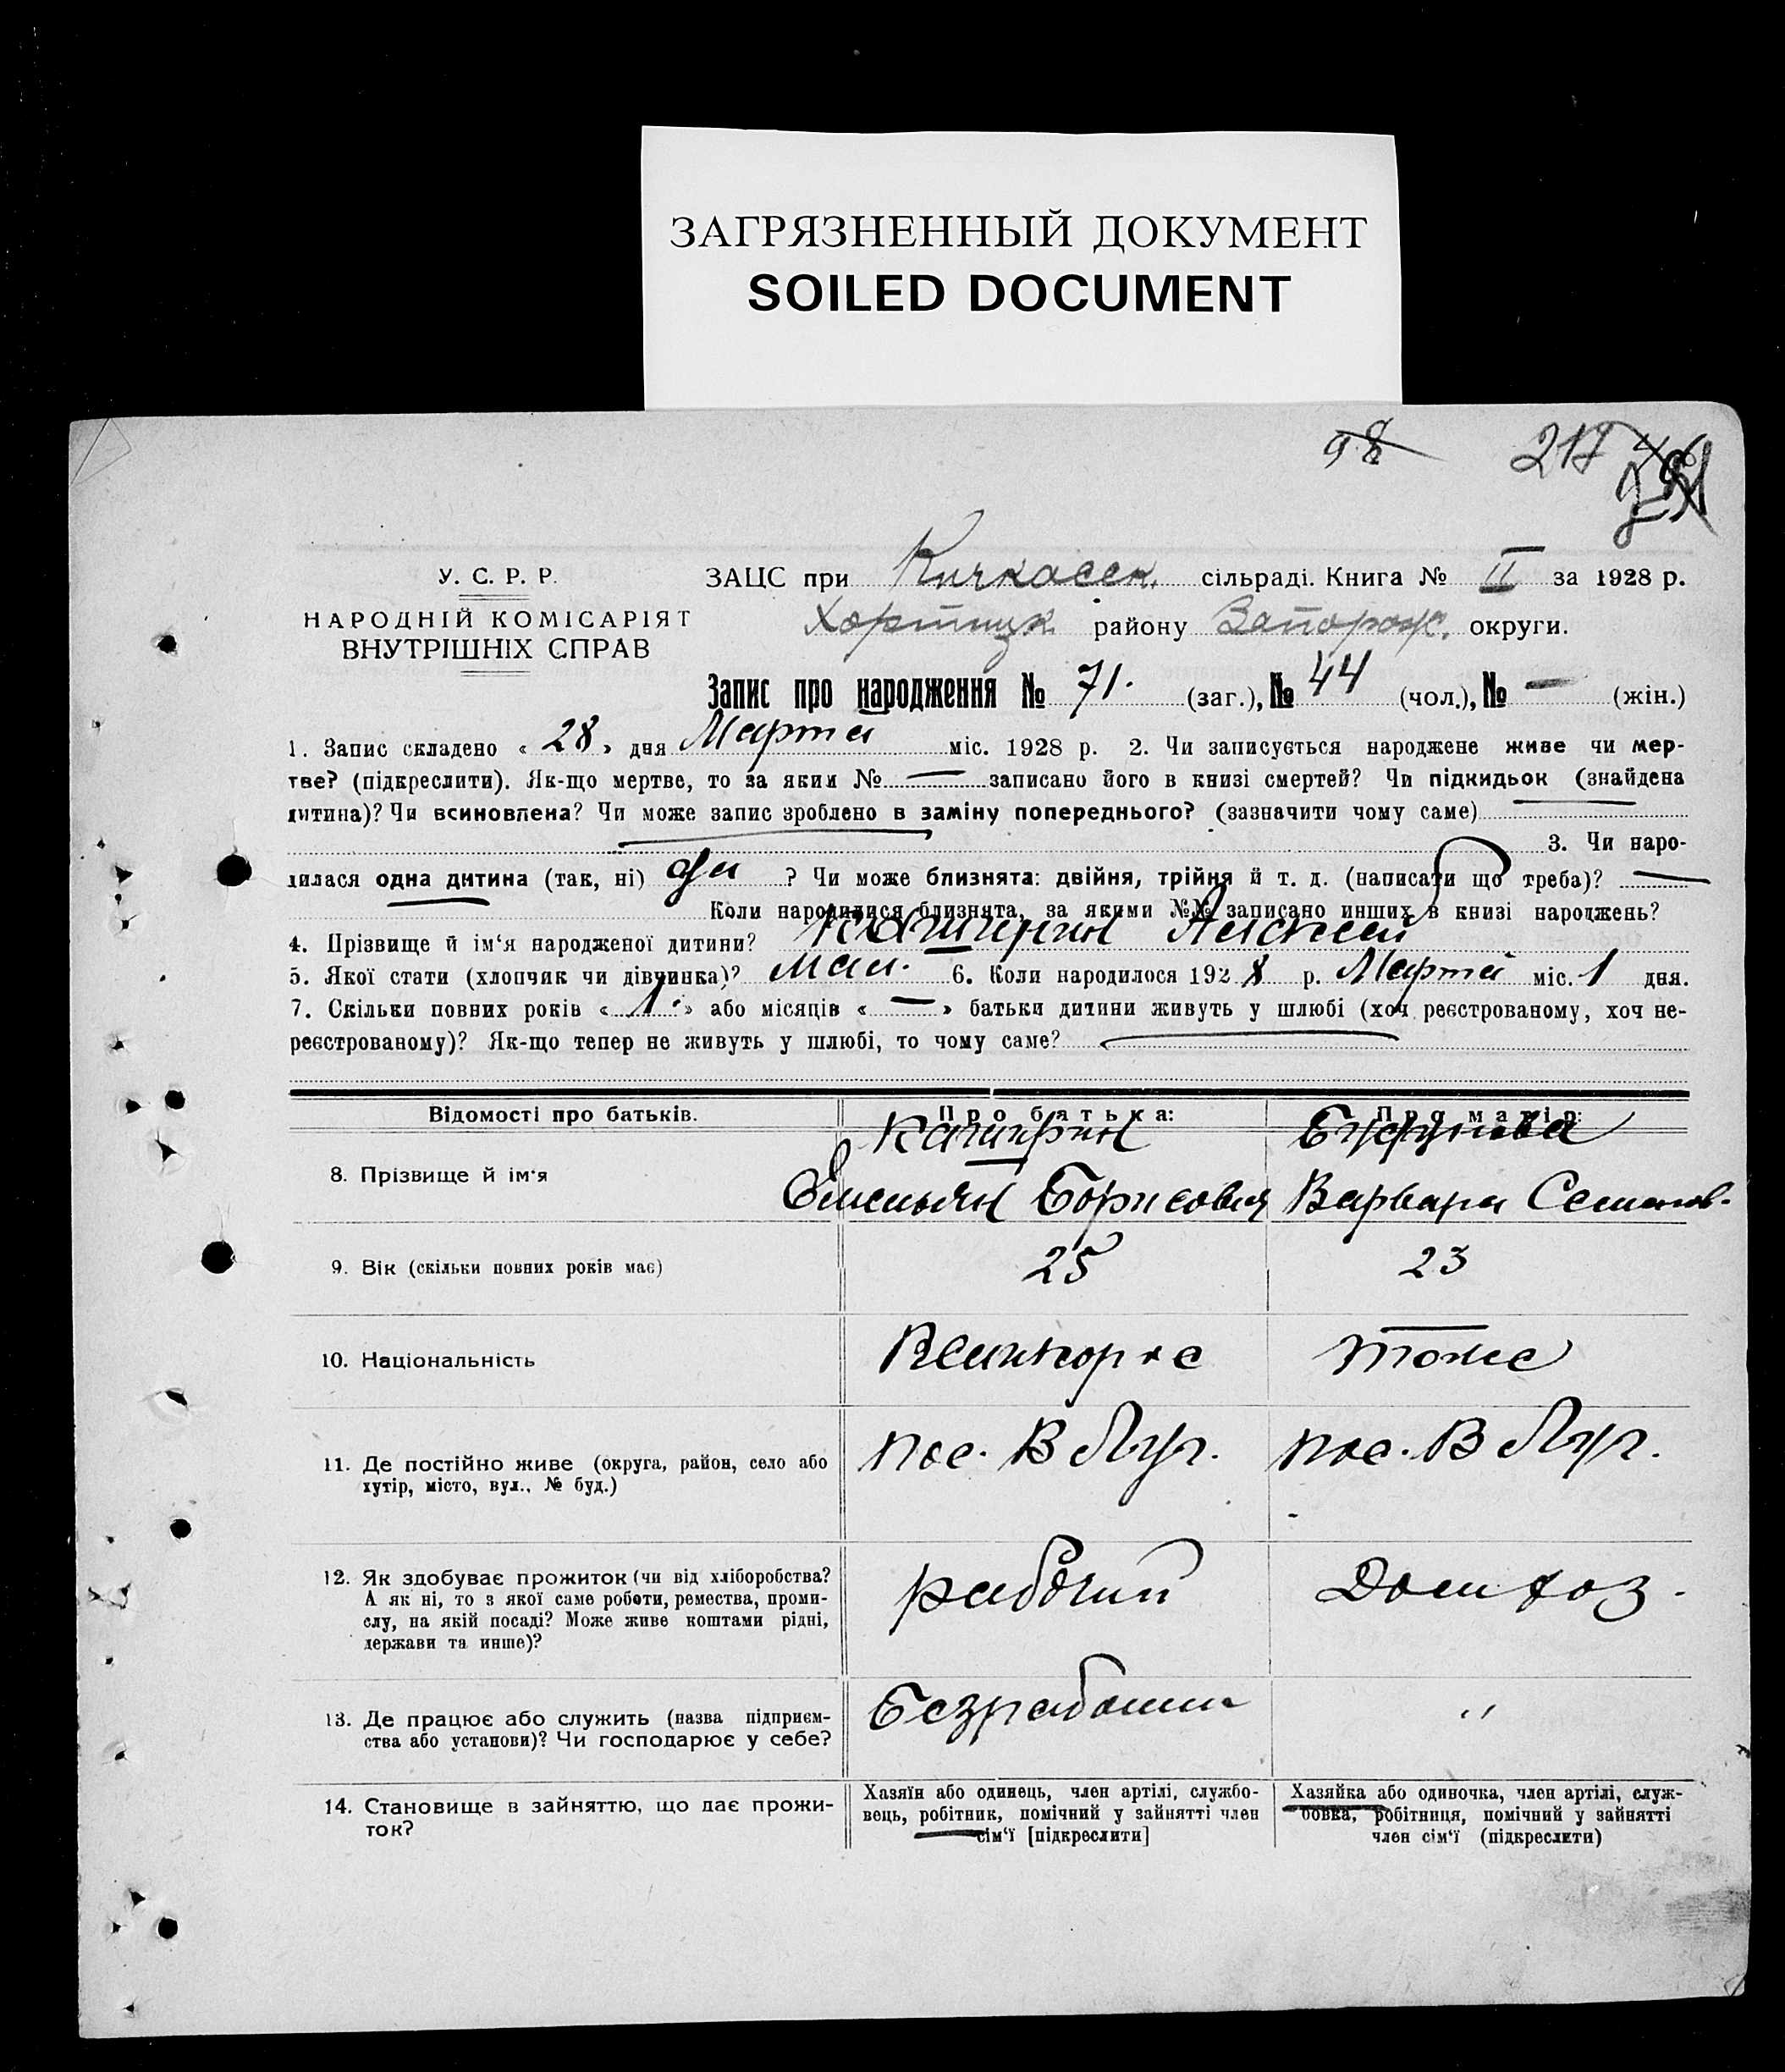 ЗАГРЯЗНЕННЫЙ ДОКУМЕНТ
SOILED DOCUMENT
98 217
У. С. Р. Р.
НАРОДНІЙ КОМІСАРІЯТ
ВНУТРІШНІХ СПРАВ
ЗАЦС при Кичкасск. сільраді. Книга № II за 1928 р.
Хортицк району Запорож. округи.
Запис про народження № 71. (заг.), № 44 (чол.), № — (жін.)
1. Запис складено « 28 » дня Марта міс. 1928 р. 2. Чи записується народжене живе чи мер-
тве? (підкреслити). Як-що мертве, то за яким № — записано його в книзі смертей? Чи підкидьок (знайдена
дитина)? Чи всиновлена? Чи може запис зроблено в заміну попереднього? (зазначити чому саме)
3. Чи наро-
дилася одна дитина (так, ні) да ? Чи може близнята: двійня, трійня й т. д. (написати що треба)? —
Коли народилися близнята, за якими №№ записано инших в книзі народжень?
4. Прізвище й ім‘я народженої дитини? Алексей
5. Якої стати (хлопчик чи дівчинка)? мал. 6. Коли народилося 1928 р. Марта міс. 1 дня.
7. Скільки повних років « 1 » або місяців « — » батьки дитини живуть у шлюбі (хоч реєстрованому, хоч не-
реєстрованому)? Як-що тепер не живуть у шлюбі, то чому саме?
Відомості про батьків. Про батька: Про матір:
8. Прізвище й ім‘я
Емельян Борисович Варвара Семенов.
9. Вік (скільки повних років має) 25 23
10. Національність Великорос тоже
11. Де постійно живе (округа, район, село або
хутір, місто, вул., № буд.)
пос. В Луг. пос. В Луг.
12. Як здобуває прожиток (чи від хліборобства?
А як ні, то з якої саме роботи, ремества, проми-
слу, на якій посаді? Може живе коштами рідні,
держави та инше)?
рабочий Дом хоз.
13. Де працює або служить (назва підприєм-
ства або установи)? Чи господарює у себе?
Безработн "
14. Становище в зайняттю, що дає прожи-
ток?
Хазяїн або одинець, член артілі, службо-
вець, робітник, помічний у зайнятті член
сім‘ї [підкреслити]
Хазяйка або одиночка, член артілі, служ-
бовка, робітниця, помічний у зайнятті
член сім‘ї (підкреслити)